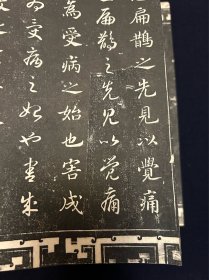 扁鵲之先見以覺痛
扁鵲之先見以覺痛
為受病之始也害成
為受病之始也害成